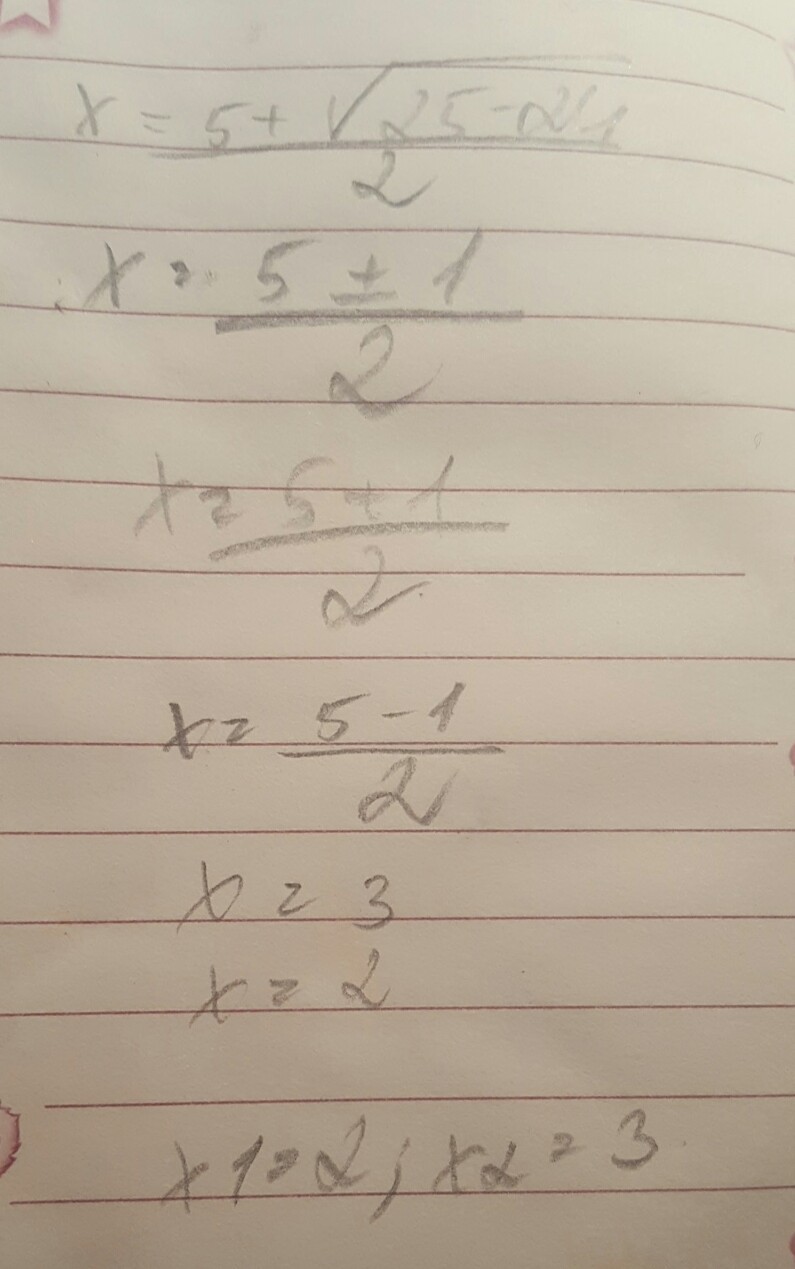 x = 5 + √25 - 24 / 2
x = 5 ± 1 / 2
x = 5 + 1 / 2
x = 5 - 1 / 2
x = 3
x = 2
x1 = 2; x2 = 3